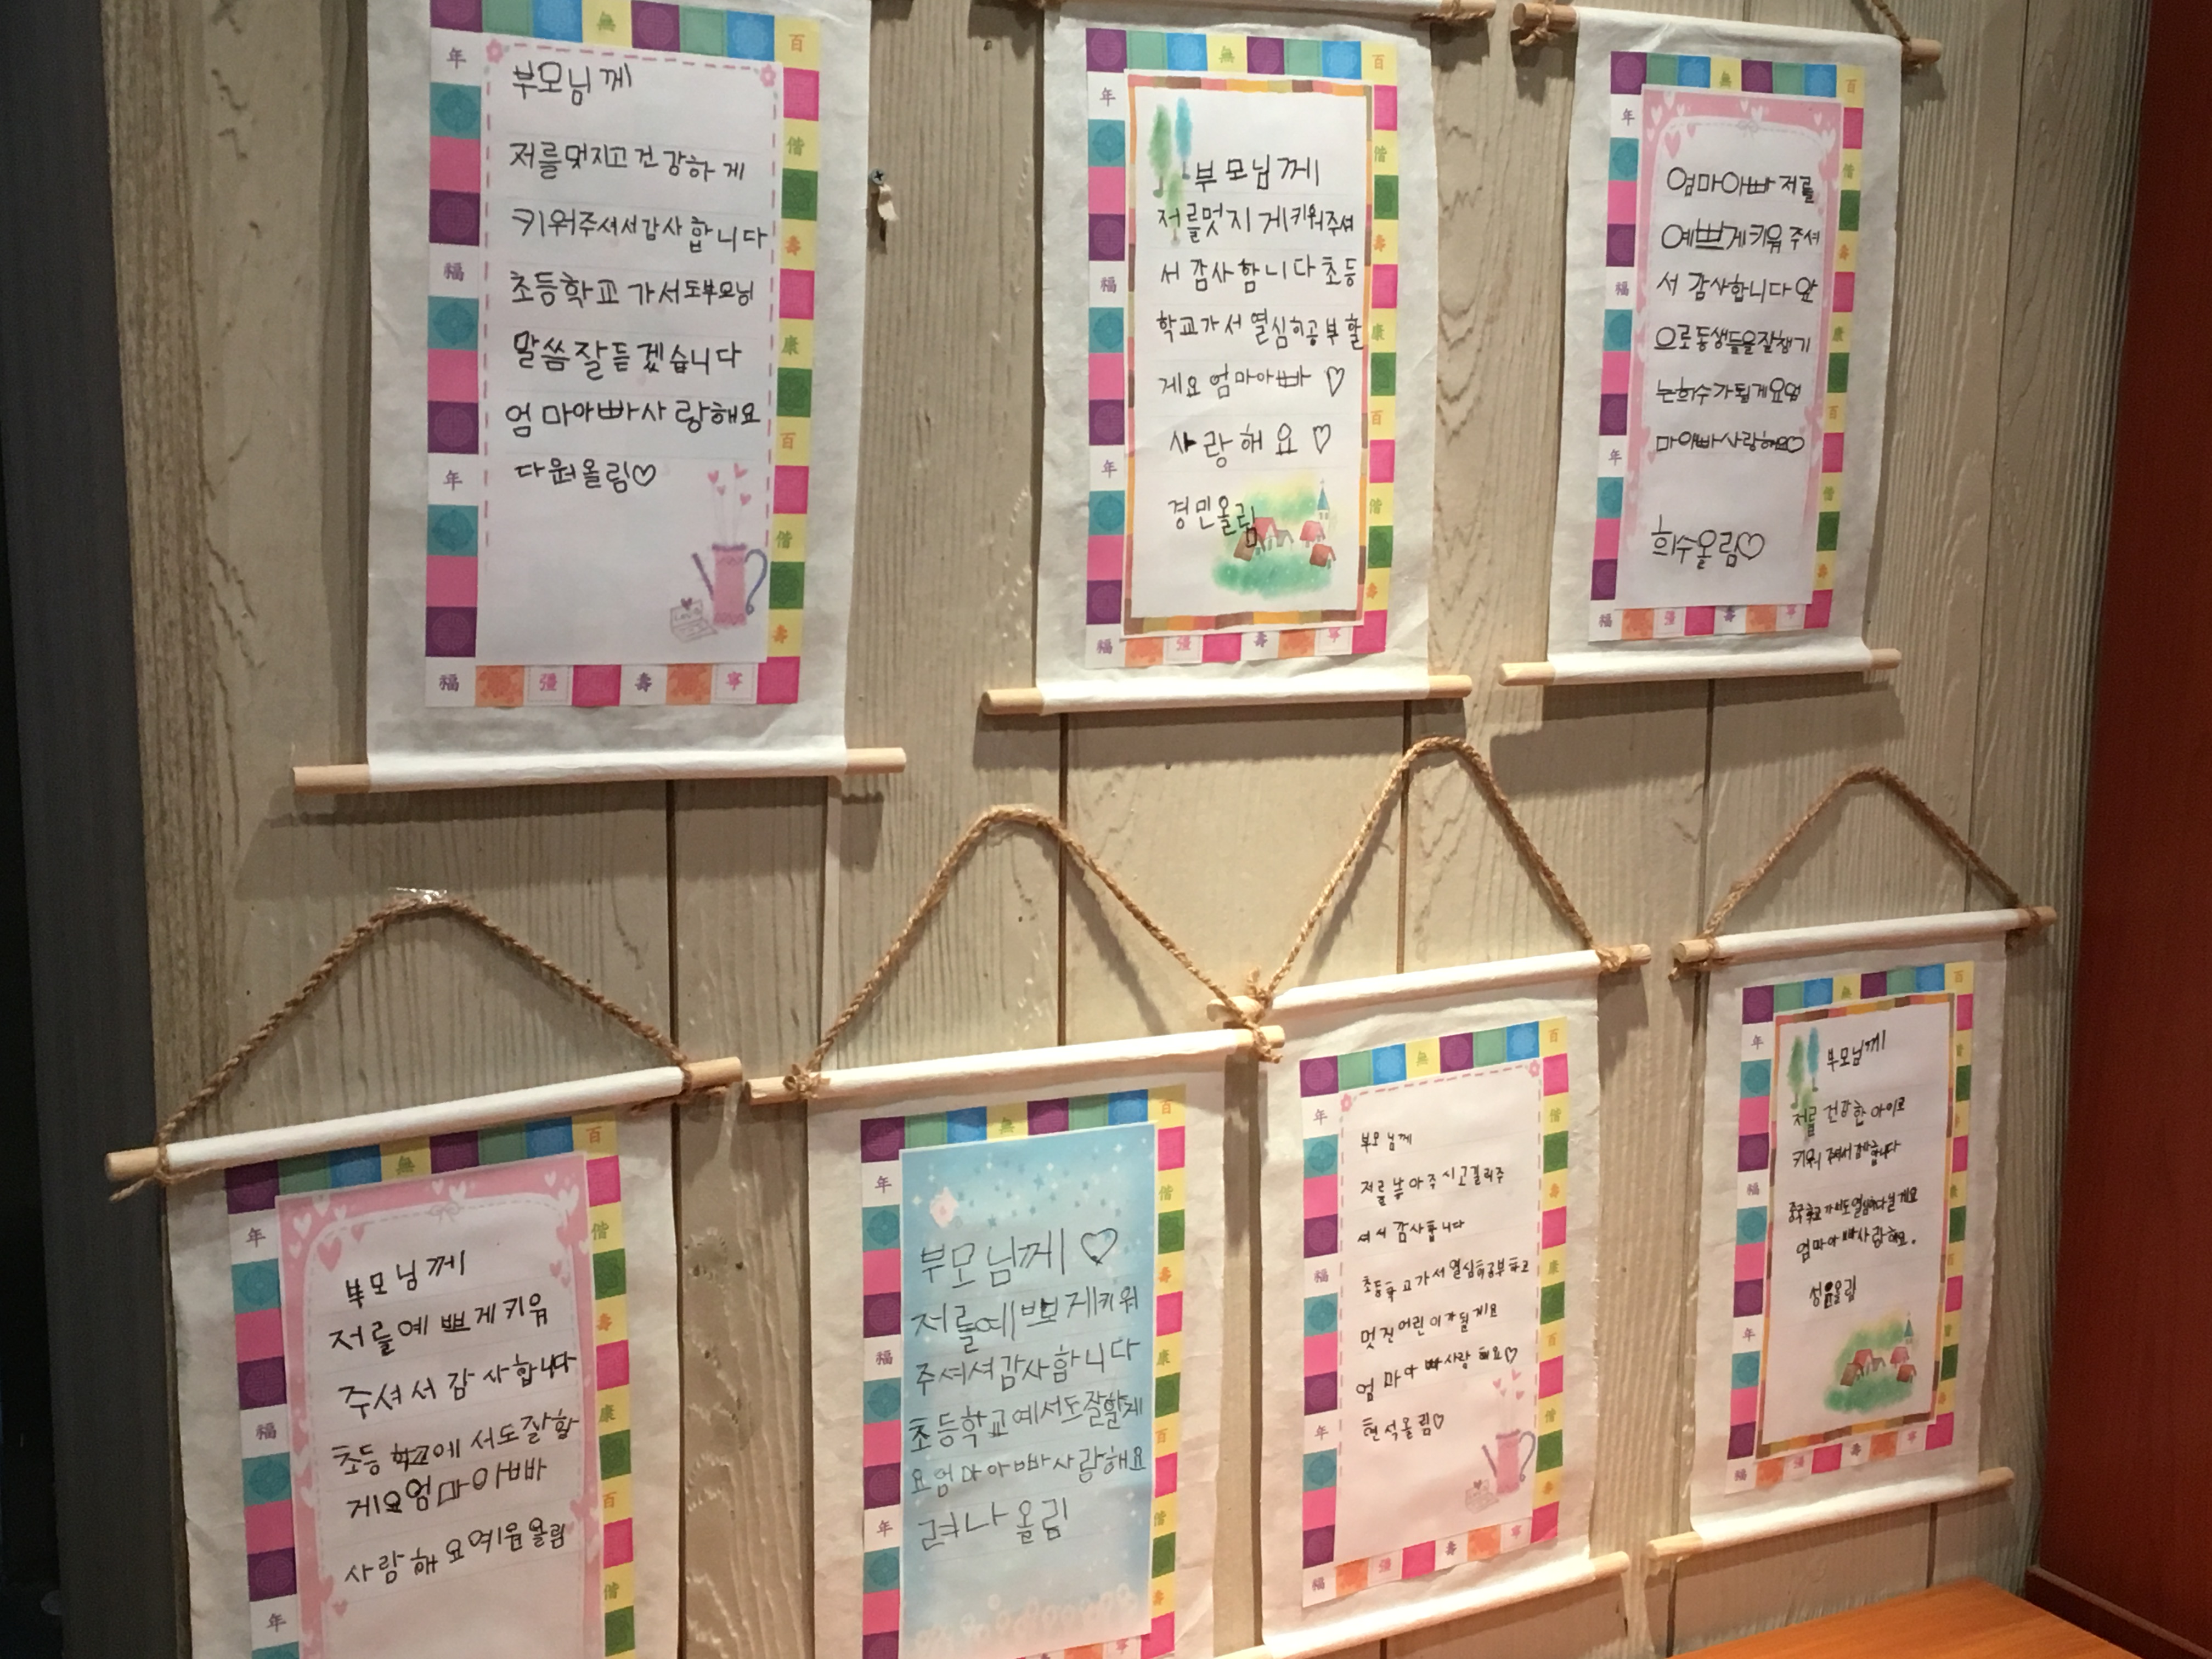 부모님께
저를멋지고건강하게
키워주셔서감사합니다
초등학교가서도부모님
말씀잘듣겠습니다
엄마아빠사랑해요
다원올림♡
부모님께
저를멋지게키워주셔
서감사함니다초등
학교가서열심히공부할
게요엄마아빠♡
사랑해요♡
경민올림
엄마아빠저를
예쁘게키워주셔
서감사합니다앞
으로동생들을잘챙기
는희수가될게요엄
마아빠사랑해요♡
희수올림♡
부모님께
저를예쁘게키워
주셔서감사합니다
초등학교에서도잘할
게요엄마아빠
사랑해요예윤올림
부모님께♡
저를예쁘게키워
주셔셔감사합니다
초등학교에서도잘할게
요엄마아빠사랑해요
려나올림
부모님께
저를낳아주시고길러주
셔서감사합니다
초등학교가서열심히공부하고
멋진어린이가될게요
엄마아빠사랑해요♡
현석올림♡
부모님께
저를건강한아이로
키워주셔서감사합니다
중국학교가서도열심히다닐게요
엄마아빠사랑해요.
성윤올림
年
福
無
百
偕
壽
康
張
寧